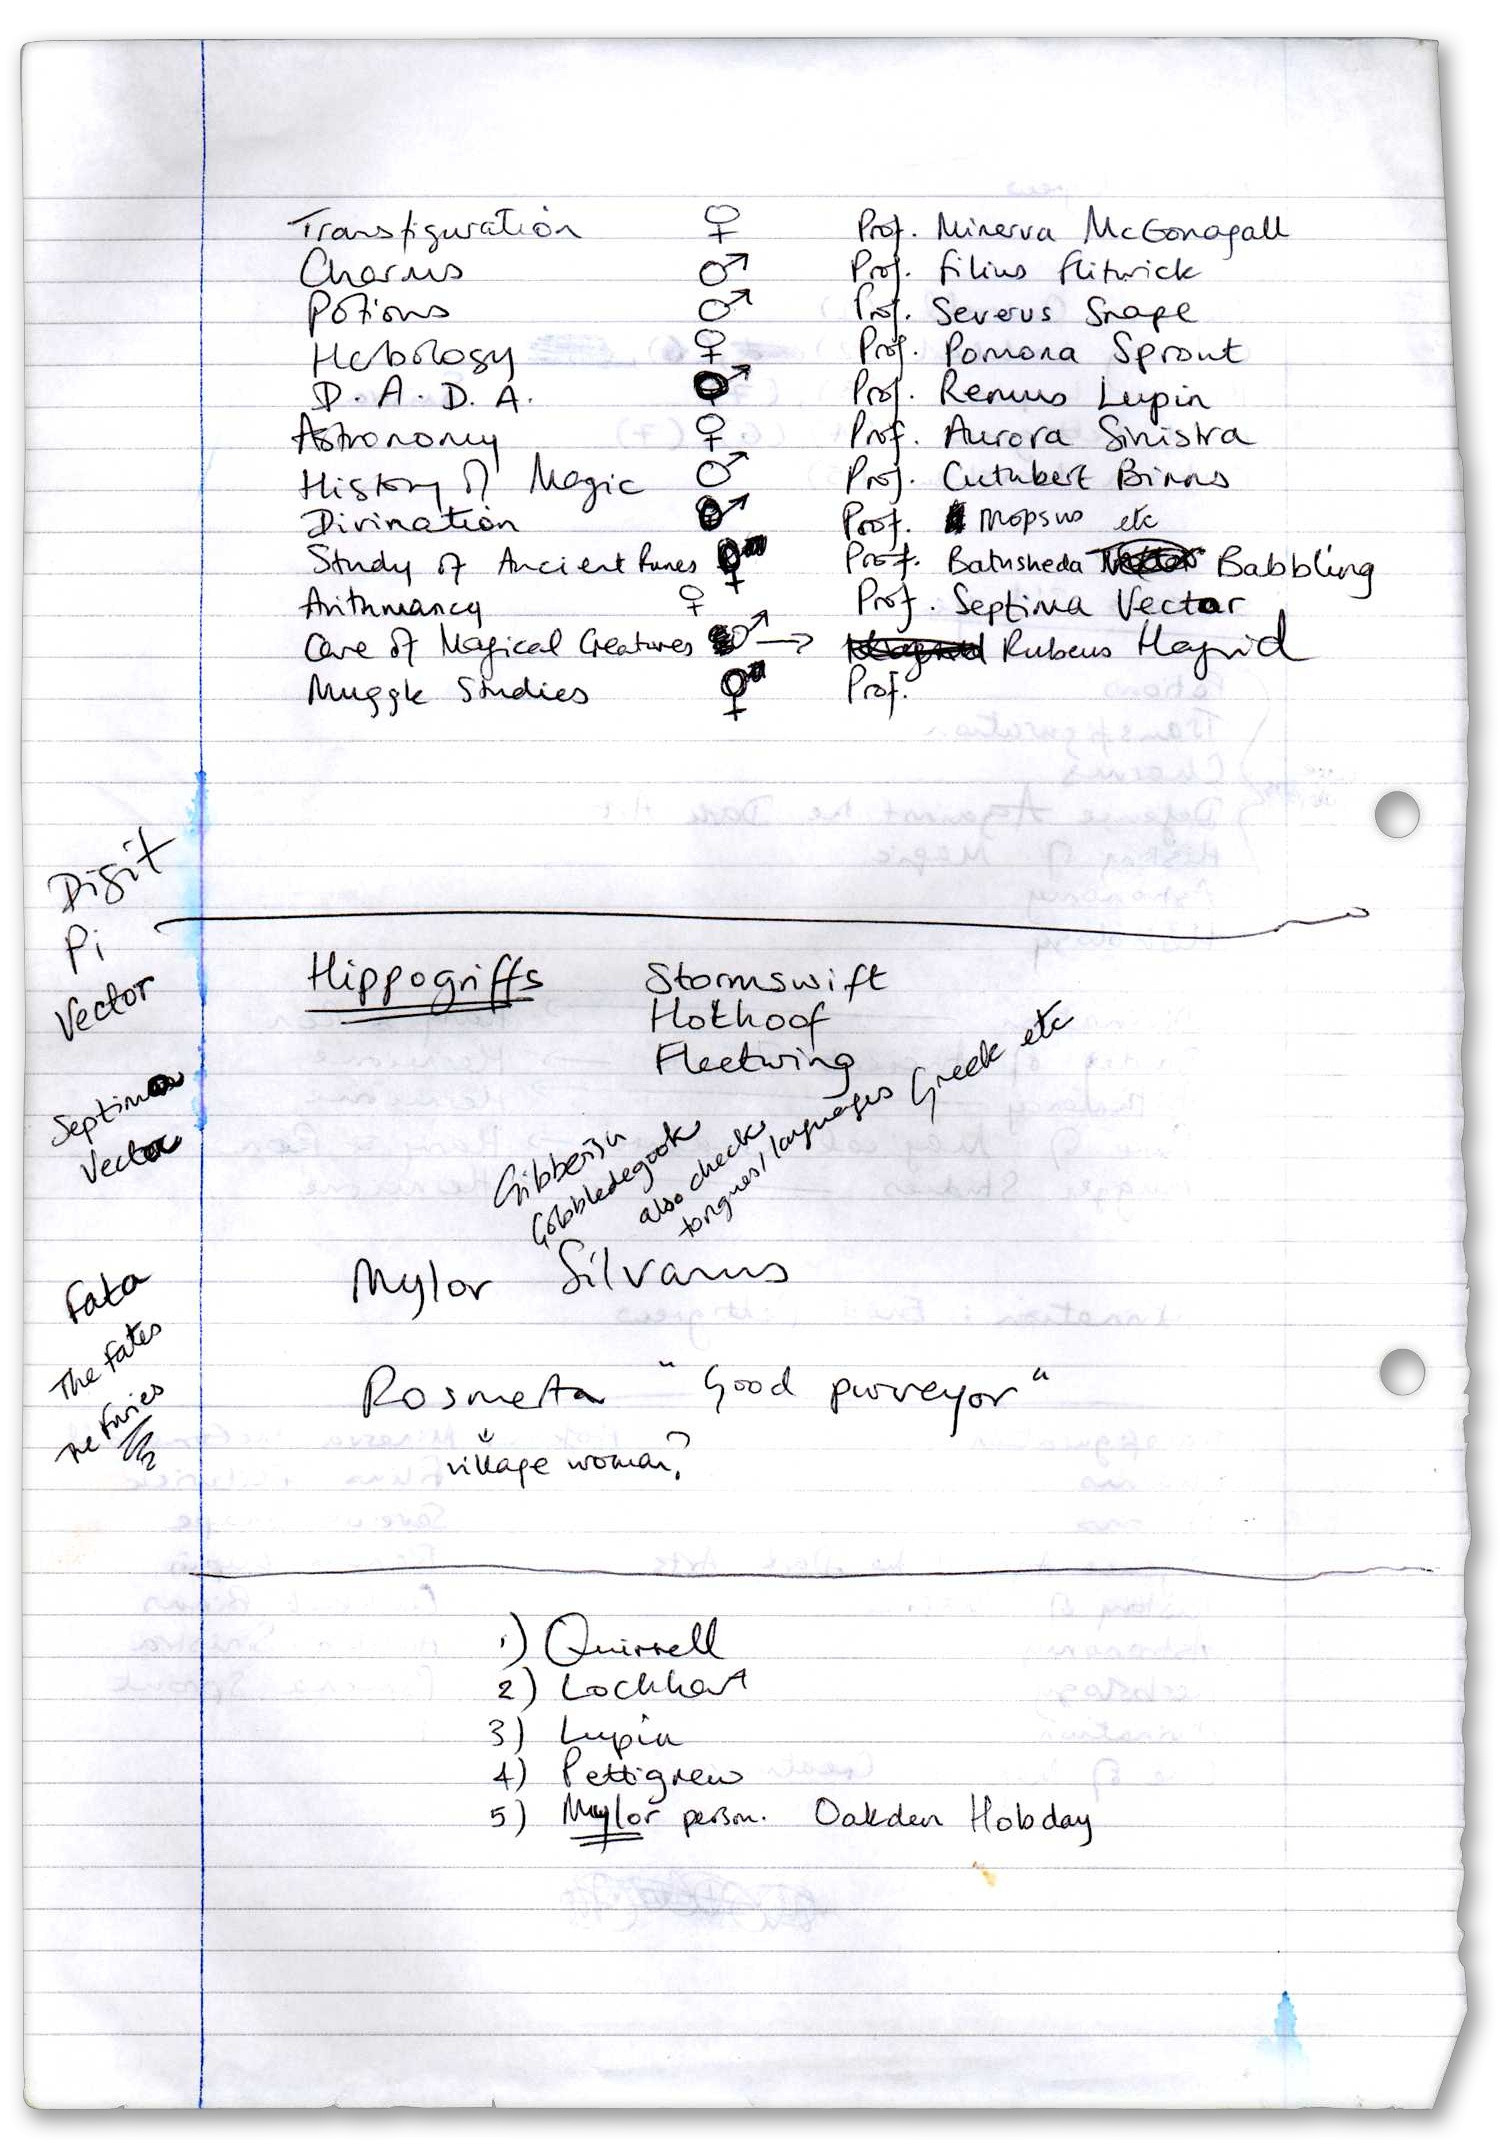 Transfiguration ♀ Prof. Minerva McGonagall
Charms ♂ Prof. Filius Flitwick
Potions ♂ Prof. Severus Snape
Herbology ♀ Prof. Pomona Sprout
D.A.D.A. ♂ Prof. Remus Lupin
Astronomy ♀ Prof. Aurora Sinistra
History of Magic ♂ Prof. Cuthbert Binns
Divination ♂ Prof. Mopsus etc
Study of Ancient Runes ♀ Prof. Bathsheda Babbling
Arithmancy ♀ Prof. Septima Vector
Care of Magical Creatures ♂ → Rubeus Hagrid
Muggle Studies ♀ Prof.
Digit
Pi
Vector
Septima
Vector
Hippogriffs
Stormswift
Hothoof
Fleetwing
Gibberish
Gobbledegook
also check
tongues/languages Greek etc
Mylor Silvanus
Fata
The Fates
The Furies
Rosmerta "Good purveyor"
↓
village woman?
1) Quirrell
2) Lockhart
3) Lupin
4) Pettigrew
5) Mylor person. Oakden Hobday